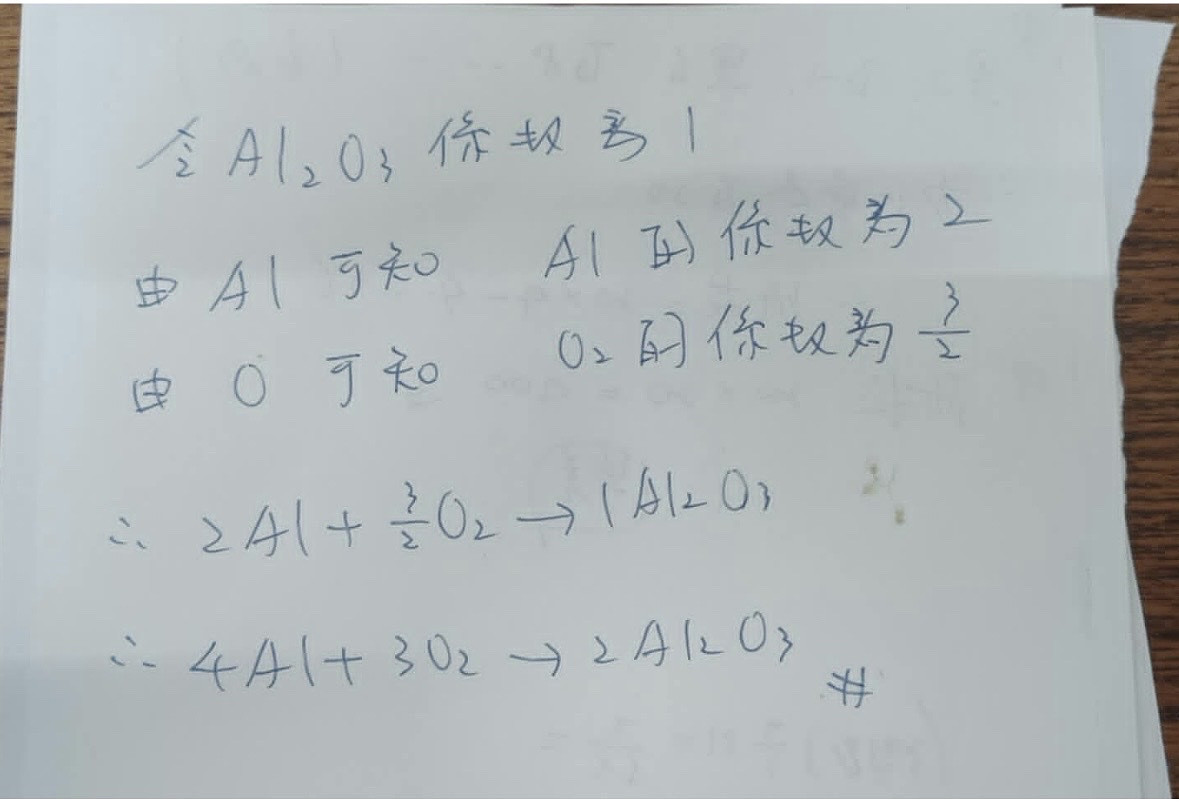 令 Al₂O₃ 係数為 1
由 Al 可知 Al 的係数為 2
由 O 可知 O₂ 的係数為 3/2
∴ 2Al + 3/2 O₂ → 1Al₂O₃
∴ 4Al + 3O₂ → 2Al₂O₃ #